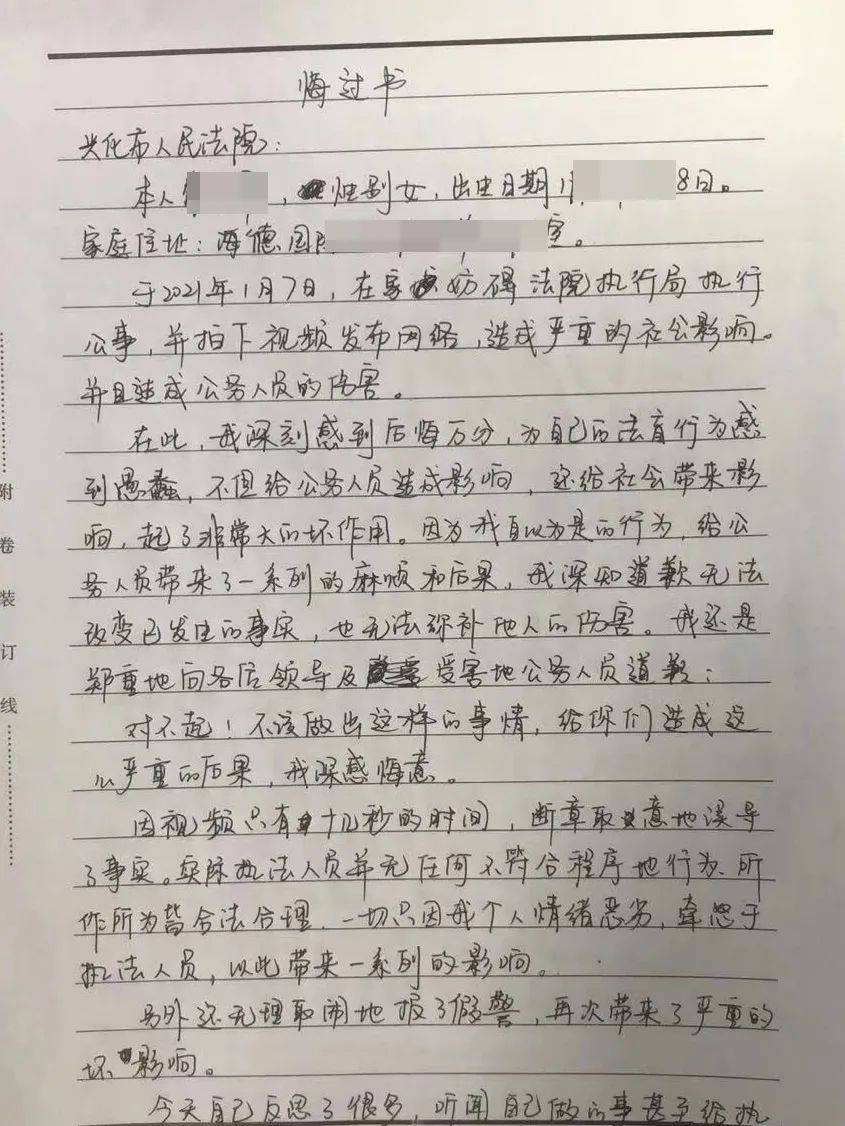 悔过书
兴化市人民法院：
本人，性别女，出生日期1 8日。
家庭住址：海德国 室。
于2021年1月7日，在家妨碍法院执行局执行
公事，并拍下视频发布网络，造成严重的社公影响。
并且造成公务人员的伤害。
在此，我深刻感到后悔万分，为自己的法盲行为感
到愚蠢，不但给公务人员造成影响，还给社会带来影
响，起了非常大的坏作用。因为我自以为是的行为，给公
务人员带来了一系列的麻烦和后果，我深知道歉无法
改变已发生的事实，也无法弥补他人的伤害。我还是
郑重地向各位领导及受害地公务人员道歉：
对不起！不该做出这样的事情，给你们造成这
么严重的后果，我深感悔意。
因视频只有十几秒的时间，断章取意地误导
了事实。实际执法人员并无任何不符合程序地行为、所
作所为皆合法合理，一切只因我个人情绪恶劣，牵怒于
执法人员，以此带来一系列的影响。
另外还无理取闹地报了假警，再次带来了严重的
坏影响。
今天自己反思了很多，听闻自己做的事甚至给执
附卷装订线